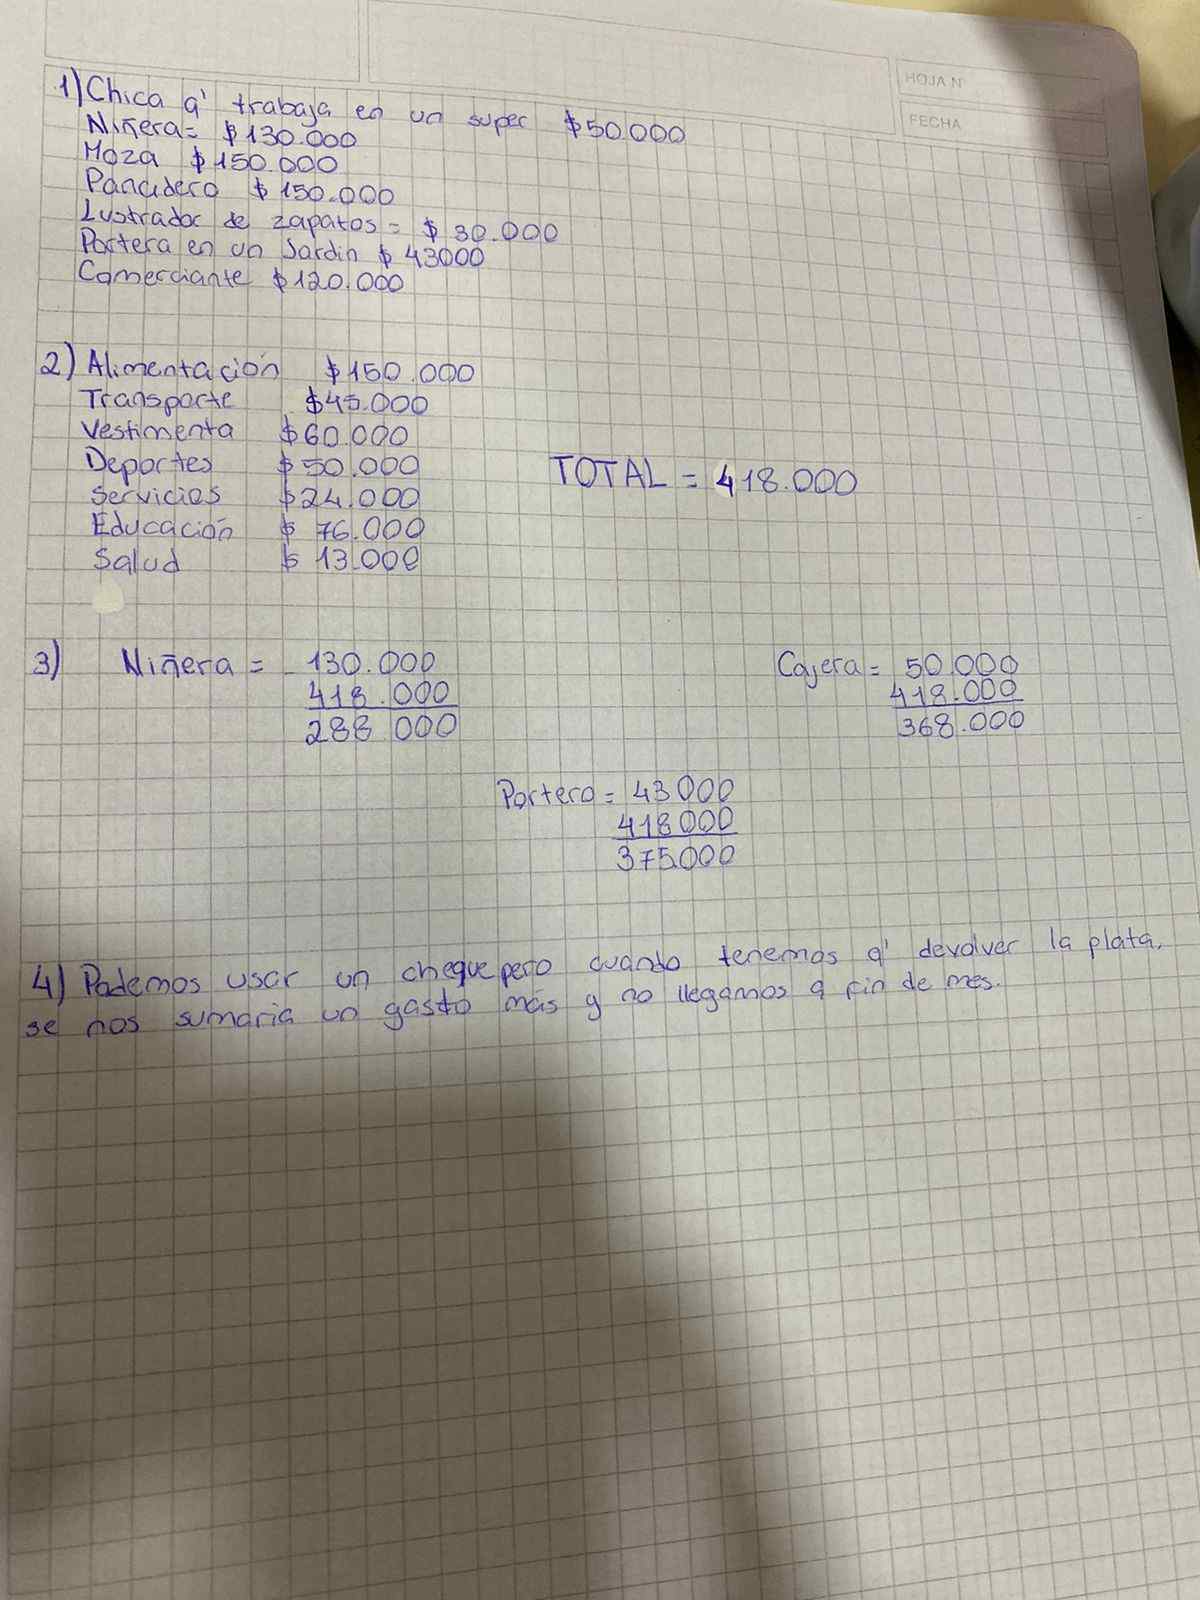 HOJA N
FECHA
1) Chica q' trabaja en un super $50.000
Niñera= $130.000
Moza $150.000
Panadero $150.000
Lustrador de zapatos= $30.000
Portera en un Jardin $43000
Comerciante $120.000
2) Alimentación $150.000
Transporte $45.000
Vestimenta $60.000
Deportes $50.000
TOTAL = 418.000
Servicios $24.000
Educación $76.000
Salud $13.000
3) Niñera = 130.000
418.000
288 000
Cajera= 50.000
418.000
368.000
Portero= 43000
418000
375000
4) Podemos usar un cheque pero cuando tenemos q' devolver la plata,
se nos sumaria un gasto más y no llegamos a fin de mes.